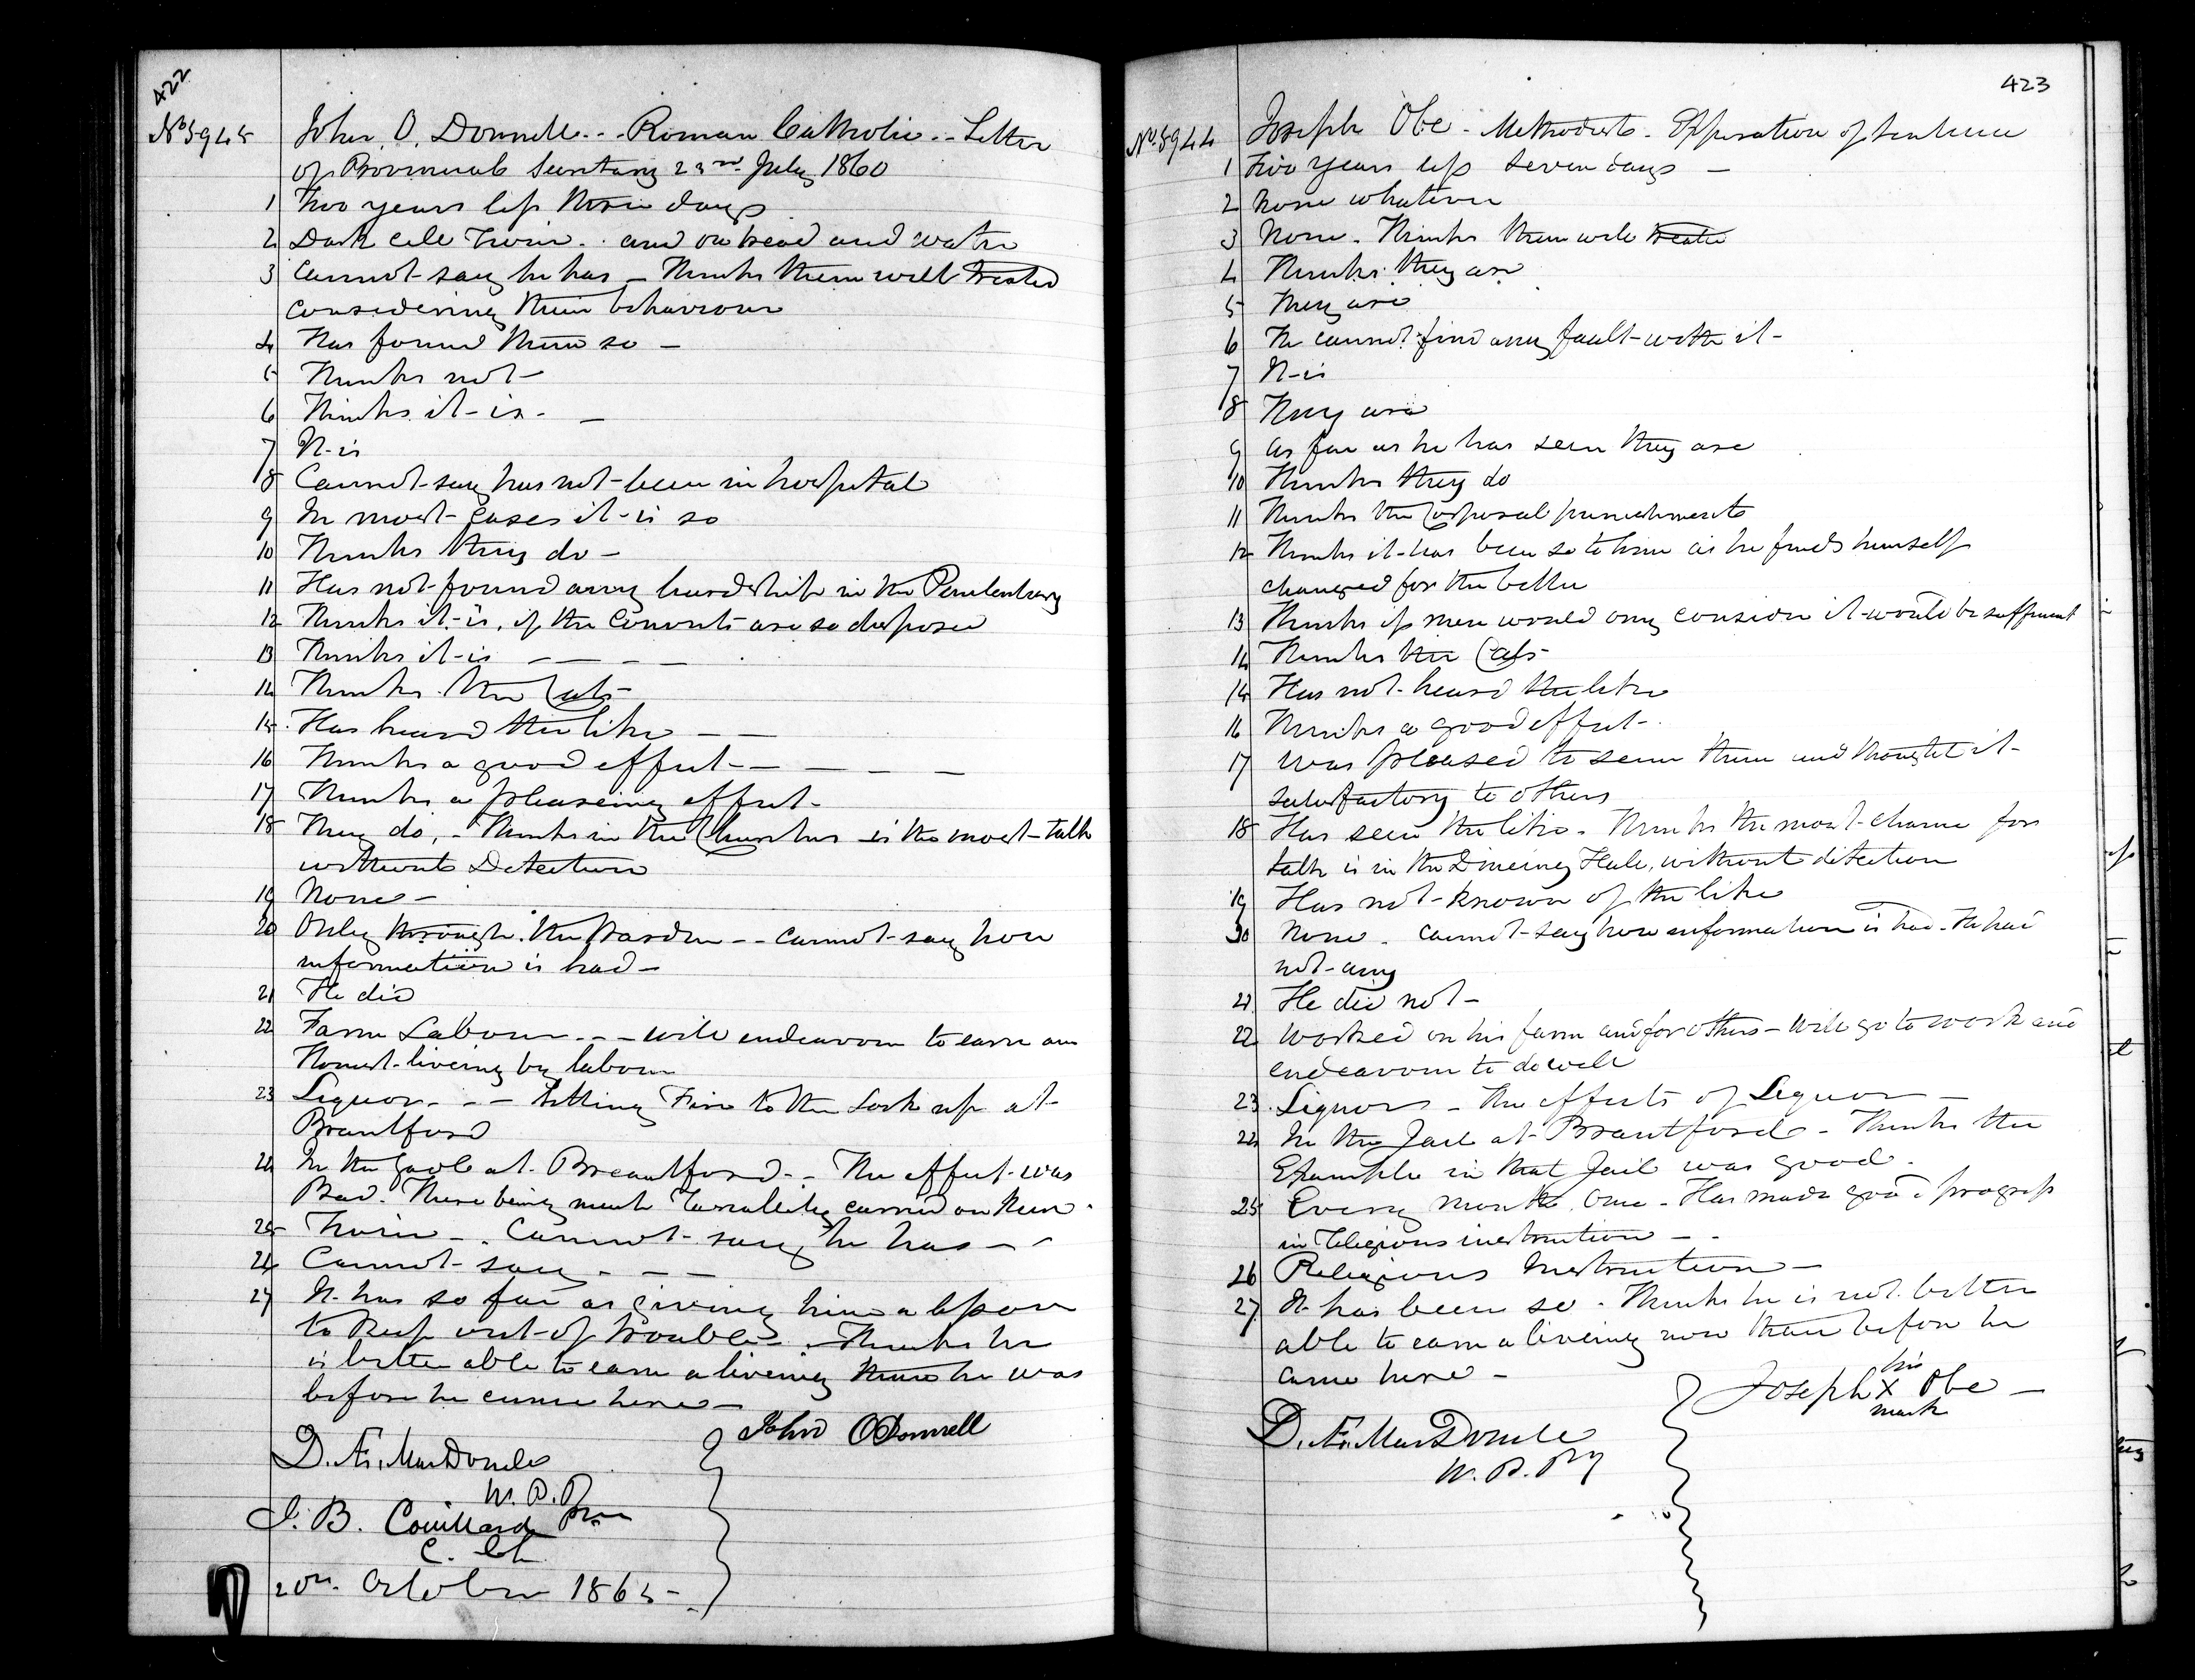 422
No 5945 John O. Donnell - - Roman Catholic - - Letter
of Provincial Secretary 23rd July 1860
1 Two years less three days
2 Dark cell Twice - and on bread and water
3 Cannot say he has - Thinks them well treated
considering their behaviour
4 Has found them so -
5 Thinks not -
6 Thinks it is - -
7 It is
8 Cannot say has not been in hospital
9 In most cases it is so
10 Thinks they do -
11 Has not found any hardship in the Penitentiary
12 Thinks it is, if the Convicts are so disposed
13 Thinks it is - - - -
14 Thinks the Cats -
15 Has heard the like - -
16 Thinks a good effect - - - - -
17 Thinks a pleaseing effect -
18 They do, - Thinks in the Churches is the most talk
without Detection
19 None -
20 Only through the Warden - - cannot say how
information is had -
21 He did
22 Farm Labour - - - will endeavour to earn an
Honest liveing by labour
23 Liquor - - - Setting Fire to the Lock up at
Brantford
24 In the Gaole at Breantford - The effect was
Bad. There being much carried on there -
25 Twice - . Cannot say he has - -
26 Cannot say - - -
27 It has so far as giving him a lesson
to keep out of trouble - Thinks he
is better able to earn a liveing than he was
before he came here -
John ODonnell
D. Æ. MacDonell
W. P. P
J. B. Couillard Ptre
C. Ch
20th October 1865 -
423
No. 5944 Joseph Obe - Methodist - Expiration of Sentence
1 Two years less seven days -
2 None whatever
3 None - Thinks them well treated
4 Thinks they are
5 They are
6 He cannot find any fault with it -
7 It is
8 They are
9 as far as he has seen they are
10 Thinks they do
11 Thinks the Corporal punishments
12 Thinks it has been so to him as he finds himself
changed for the better
13 Thinks if men would only consider it would be sufficient
14 Thinks the Cats -
15 Has not heard the like
16 Thinks a good effect -
17 Was pleased to seem them and thought it
satisfactory to others
18 Has seen the like - Thinks the most chance for
talk is in the Dineing Hall, without detection
19 Has not known of the like
20 None - cannot say how information is had - He had
not any
21 He did not -
22 Worked on his farm and for others - Will go to work and
endeavour to do well
23 Liquors - The effects of Liquor -
24 In the Jail at Brantford - Thinks the
Example in that Jail was good -
25 Every month once - Has made good progress
in Religious instruction - -
26 Religious Instruction -
27 It has been so - Thinks he is not better
able to earn a liveing now than before he
came here -
his
Joseph X Obe -
mark
D. Æ. MacDonell
W. P. Py